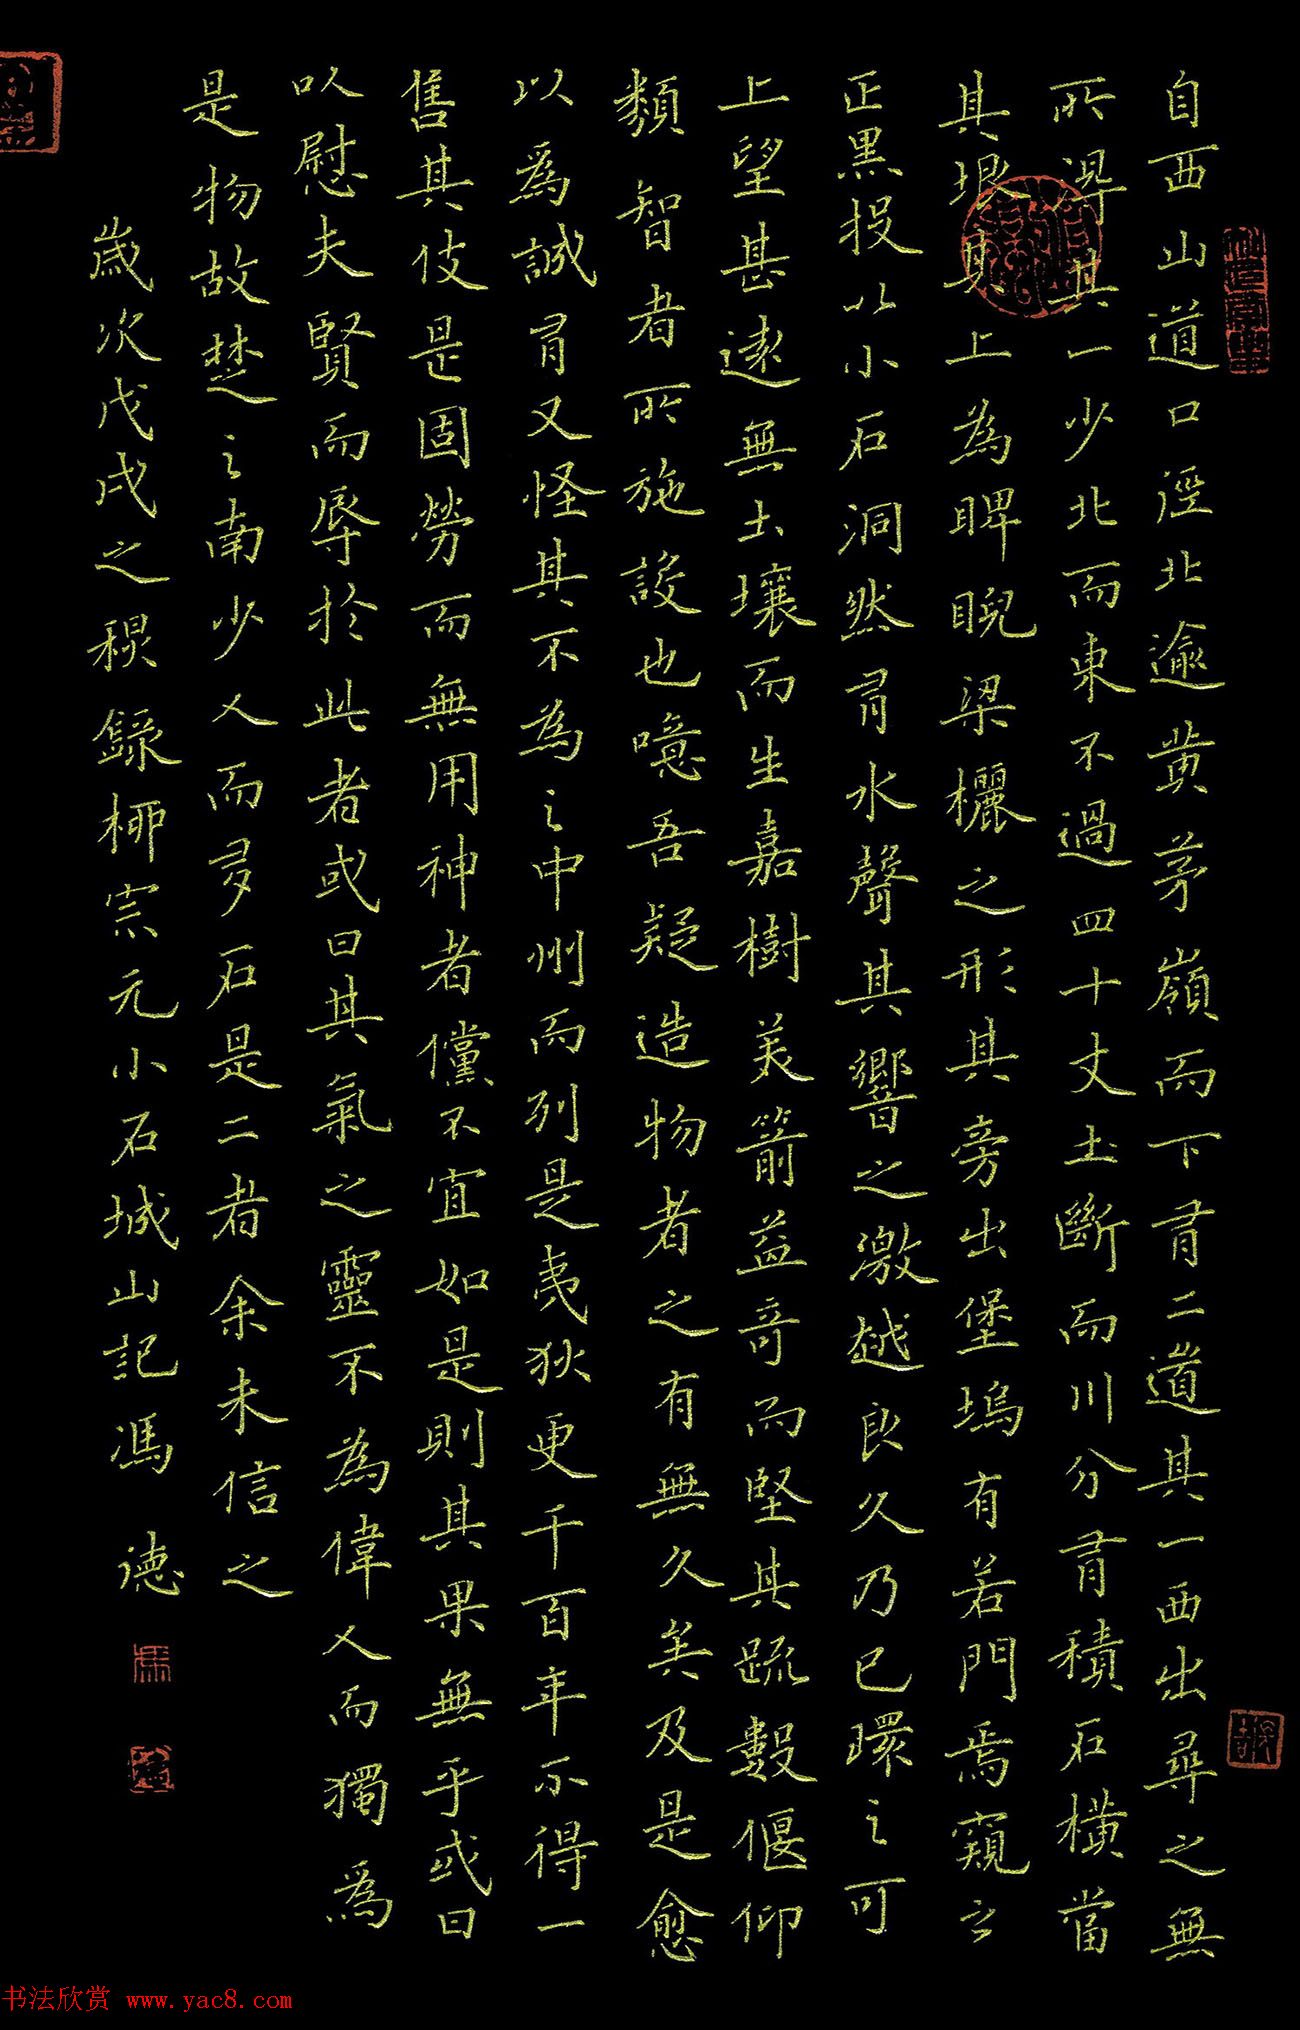 自西山道口徑北逾黄茅嶺而下有二道其一西出尋之無
所得其一少北而東不過四十丈土斷而川分有積石橫當
其垠其上為睥睨梁欐之形其旁出堡塢有若門焉窺之
正黑投以小石洞然有水聲其響之激越良久乃已環之可
上望甚遠無土壤而生嘉樹美箭益奇而堅其疏數偃仰
類智者所施設也噫吾疑造物者之有無久矣及是愈
以為誠有又怪其不為之中州而列是夷狄更千百年不得一
售其伎是固勞而無用神者儻不宜如是則其果無乎或曰
以慰夫賢而辱於此者或曰其氣之靈不為偉人而獨為
是物故楚之南少人而多石是二者余未信之
歲次戊戌之秋錄柳宗元小石城山記馮德
书法欣赏 www.yac8.com